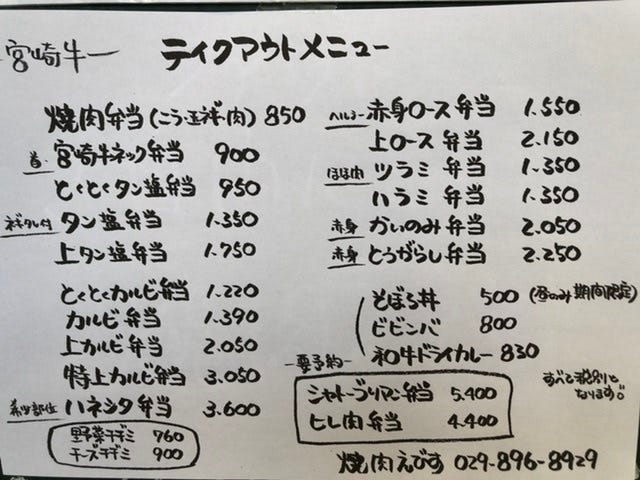 宮崎牛一
テイクアウトメニュー
焼肉弁当(こう・玉ネギ・肉) 850
首 宮崎牛ネック弁当 900
とくとくタン塩弁当 950
ネギタレ付 タン塩弁当 1.350
上タン塩弁当 1.750
とくとくカルビ弁当 1.220
カルビ弁当 1.390
上カルビ弁当 2.050
特上カルビ弁当 3.050
希少部位 ハネシタ弁当 3.600
野菜チヂミ 760
チーズチヂミ 900
ヘルシー 赤身ロース弁当 1.550
上ロース弁当 2.150
ほほ肉 ツラミ弁当 1.350
ハラミ弁当 1.350
赤身 かいのみ弁当 2.050
赤身 とうがらし弁当 2.250
そぼろ丼 500 (昼のみ期間限定)
ビビンバ 800
和牛ドライカレー 830
要予約
シャトーブリアン弁当 5.400
ヒレ肉弁当 4.400
すべて税別と
なります。
焼肉えびす 029-896-8929